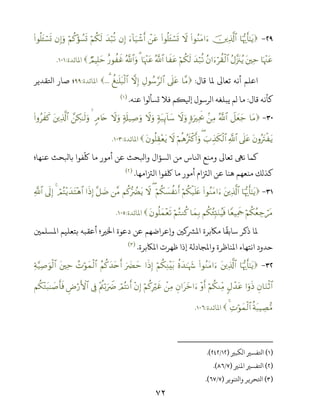 ٢٩- ﴿ يَٰٓأَيُّهَا ٱلَّذِينَ ءَامَنُوا۟ لَا تَسْـَٔلُوا۟ عَنْ أَشْيَآءَ إِن تُبْدَ لَكُمْ تَسُؤْكُمْ وَإِن تَسْـَٔلُوا۟
عَنْهَا حِينَ يُنَزَّلُ ٱلْقُرْءَانُ تُبْدَ لَكُمْ عَفَا ٱللَّهُ عَنْهَا ۗ وَٱللَّهُ غَفُورٌ حَلِيمٌ ﴾ المائدة: ١٠١.
اعلم أنه تعالى لما قال: ﴿ مَّا عَلَى ٱلرَّسُولِ إِلَّا ٱلْبَلَٰغُ ۗ... ﴾ المائدة: ٩٩ صار التقدير
كأنه قال: ما لم يبلغه الرسول إليكم فلا تسألوا عنه.(١)
﴿ مَا جَعَلَ ٱللَّهُ مِنۢ بَحِيرَةٍ وَلَا سَآئِبَةٍ وَلَا وَصِيلَةٍ وَلَا حَامٍ ۙ وَلَٰكِنَّ ٱلَّذِينَ كَفَرُوا۟
يَفْتَرُونَ عَلَى ٱللَّهِ ٱلْكَذِبَ ۖ وَأَكْثَرُهُمْ لَا يَعْقِلُونَ ﴾ المائدة: ١٠٣.
كما نهى تعالى ومنع الناس من السؤال والبحث عن أمور ما كلّفوا بالبحث عنها؛
كذلك منعهم هنا عن التزام أمور ما كلفوا التزامها.(٢)
٣١- ﴿ يَٰٓأَيُّهَا ٱلَّذِينَ ءَامَنُوا۟ عَلَيْكُمْ أَنفُسَكُمْ ۖ لَا يَضُرُّكُم مَّن ضَلَّ إِذَا ٱهْتَدَيْتُمْ ۚ إِلَى ٱللَّهِ
مَرْجِعُكُمْ جَمِيعًا فَيُنَبِّئُكُم بِمَا كُنتُمْ تَعْمَلُونَ ﴾ المائدة: ١٠٥.
لما ذكر سابقًا مكابرة المشركين وإعراضهم عن دعوة الخير؛ أعقبه بتعليم المسلمين
حدود انتهاء المناظرة والمجادلة إذا ظهرت المكابرة.(٣)
٣٢- ﴿ يَٰٓأَيُّهَا ٱلَّذِينَ ءَامَنُوا۟ شَهَٰدَةُ بَيْنِكُمْ إِذَا حَضَرَ أَحَدَكُمُ ٱلْمَوْتُ حِينَ ٱلْوَصِيَّةِ
ٱثْنَانِ ذَوَا عَدْلٍ مِّنكُمْ أَوْ ءَاخَرَانِ مِنْ غَيْرِكُمْ إِنْ أَنتُمْ ضَرَبْتُمْ فِى ٱلْأَرْضِ فَأَصَٰبَتْكُم
مُّصِيبَةُ ٱلْمَوْتِ ۚ ﴾ المائدة: ١٠٦.
(١) التفسير الكبير (١٢/٤٤٢).
(٢) التفسير المنير (٧/٨٦).
(٣) التحرير والتنوير (٧/٦٧).
٧٢